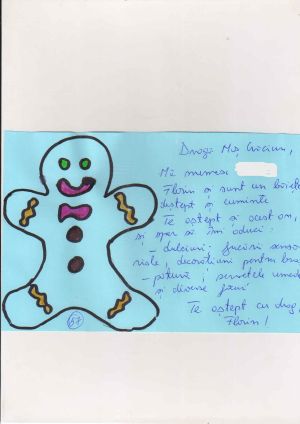 Dragă Moș Crăciun,
Mă numesc
Florin și sunt un băiețel
deștept și cuminte
Te aștept și acest an,
și sper să îmi aduci:
- dulciuri, jucării senzo-
riale, decorațiuni pentru brad
- pătură, șervețele umede
și diverse
Te aștept cu drag,
Florin!
57